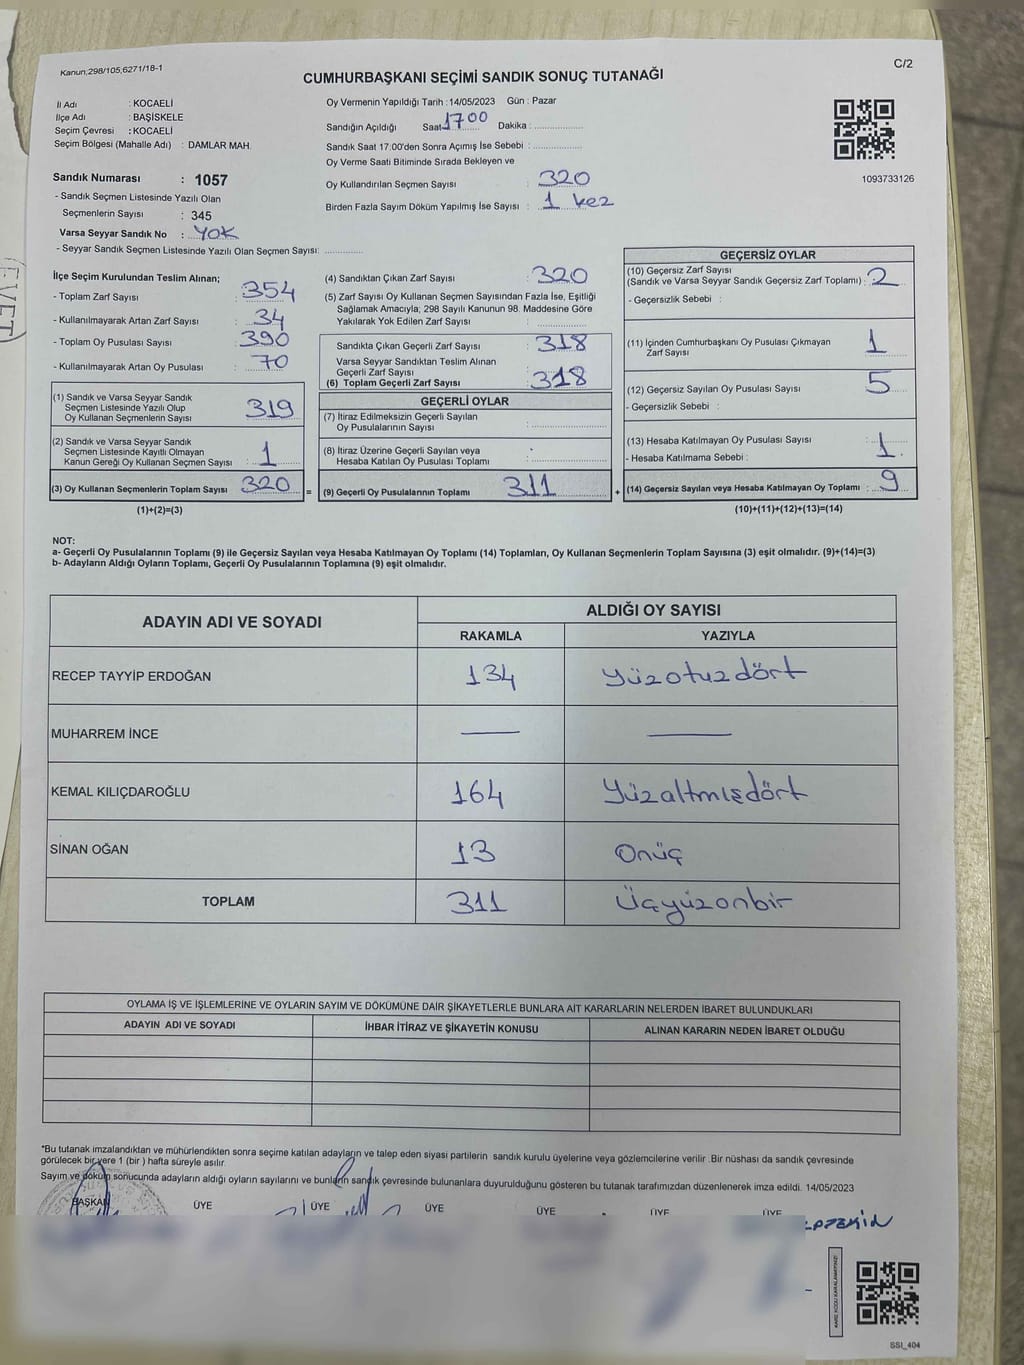 Kanun;298/105;6271/18-1
C/2
CUMHURBAŞKANI SEÇİMİ SANDIK SONUÇ TUTANAĞI
İl Adı : KOCAELİ
İlçe Adı : BAŞİSKELE
Seçim Çevresi : KOCAELİ
Seçim Bölgesi (Mahalle Adı) : DAMLAR MAH.
Sandık Numarası : 1057
- Sandık Seçmen Listesinde Yazılı Olan
Seçmenlerin Sayısı : 345
Varsa Seyyar Sandık No : YOK
- Seyyar Sandık Seçmen Listesinde Yazılı Olan Seçmen Sayısı: ..............
Oy Vermenin Yapıldığı Tarih : 14/05/2023 Gün : Pazar
Sandığın Açıldığı Saat 1700 Dakika : ..............
Sandık Saat 17:00'den Sonra Açımış İse Sebebi : ..............
Oy Verme Saati Bitiminde Sırada Bekleyen ve
Oy Kullandırılan Seçmen Sayısı : 320
Birden Fazla Sayım Döküm Yapılmış İse Sayısı : 1 kez
1093733126
İlçe Seçim Kurulundan Teslim Alınan;
- Toplam Zarf Sayısı : 354
- Kullanılmayarak Artan Zarf Sayısı : 34
- Toplam Oy Pusulası Sayısı : 390
- Kullanılmayarak Artan Oy Pusulası : 70
(1) Sandık ve Varsa Seyyar Sandık
Seçmen Listesinde Yazılı Olup
Oy Kullanan Seçmenlerin Sayısı : 319
(2) Sandık ve Varsa Seyyar Sandık
Seçmen Listesinde Kayıtlı Olmayan
Kanun Gereği Oy Kullanan Seçmen Sayısı : 1
(3) Oy Kullanan Seçmenlerin Toplam Sayısı : 320
(1)+(2)=(3)
(4) Sandıktan Çıkan Zarf Sayısı : 320
(5) Zarf Sayısı Oy Kullanan Seçmen Sayısından Fazla İse, Eşitliği
Sağlamak Amacıyla; 298 Sayılı Kanunun 98. Maddesine Göre
Yakılarak Yok Edilen Zarf Sayısı : ..............
Sandıkta Çıkan Geçerli Zarf Sayısı : 318
Varsa Seyyar Sandıktan Teslim Alınan
Geçerli Zarf Sayısı
(6) Toplam Geçerli Zarf Sayısı : 318
GEÇERLİ OYLAR
(7) İtiraz Edilmeksizin Geçerli Sayılan
Oy Pusulalarının Sayısı : ..............
(8) İtiraz Üzerine Geçerli Sayılan veya
Hesaba Katılan Oy Pusulası Toplamı : ..............
= (9) Geçerli Oy Pusulalarının Toplamı : 311
GEÇERSİZ OYLAR
(10) Geçersiz Zarf Sayısı
(Sandık ve Varsa Seyyar Sandık Geçersiz Zarf Toplamı) : 2
- Geçersizlik Sebebi :
(11) İçinden Cumhurbaşkanı Oy Pusulası Çıkmayan
Zarf Sayısı : 1
(12) Geçersiz Sayılan Oy Pusulası Sayısı : 5
- Geçersizlik Sebebi :
(13) Hesaba Katılmayan Oy Pusulası Sayısı : 1
- Hesaba Katılmama Sebebi :
+ (14) Geçersiz Sayılan veya Hesaba Katılmayan Oy Toplamı : 9
(10)+(11)+(12)+(13)=(14)
NOT:
a- Geçerli Oy Pusulalarının Toplamı (9) ile Geçersiz Sayılan veya Hesaba Katılmayan Oy Toplamı (14) Toplamları, Oy Kullanan Seçmenlerin Toplam Sayısına (3) eşit olmalıdır. (9)+(14)=(3)
b- Adayların Aldığı Oyların Toplamı, Geçerli Oy Pusulalarının Toplamına (9) eşit olmalıdır.
ADAYIN ADI VE SOYADI ALDIĞI OY SAYISI
RAKAMLA YAZIYLA
RECEP TAYYİP ERDOĞAN 134 Yüzotuzdört
MUHARREM İNCE —— ——
KEMAL KILIÇDAROĞLU 164 Yüzaltmışdört
SİNAN OĞAN 13 Onüç
TOPLAM 311 Üçyüzonbir
OYLAMA İŞ VE İŞLEMLERİNE VE OYLARIN SAYIM VE DÖKÜMÜNE DAİR ŞİKAYETLERLE BUNLARA AİT KARARLARIN NELERDEN İBARET BULUNDUKLARI
ADAYIN ADI VE SOYADI İHBAR İTİRAZ VE ŞİKAYETİN KONUSU ALINAN KARARIN NEDEN İBARET OLDUĞU
*Bu tutanak imzalandıktan ve mühürlendikten sonra seçime katılan adayların ve talep eden siyasi partilerin sandık kurulu üyelerine veya gözlemcilerine verilir .Bir nüshası da sandık çevresinde
görülecek bir yere 1 (bir ) hafta süreyle asılır.
Sayım ve döküm sonucunda adayların aldığı oyların sayılarını ve bunların sandık çevresinde bulunanlara duyurulduğunu gösteren bu tutanak tarafımızdan düzenlenerek imza edildi. 14/05/2023
BAŞKAN ÜYE ÜYE ÜYE ÜYE ÜYE ÜYE
SSI_404
EVET